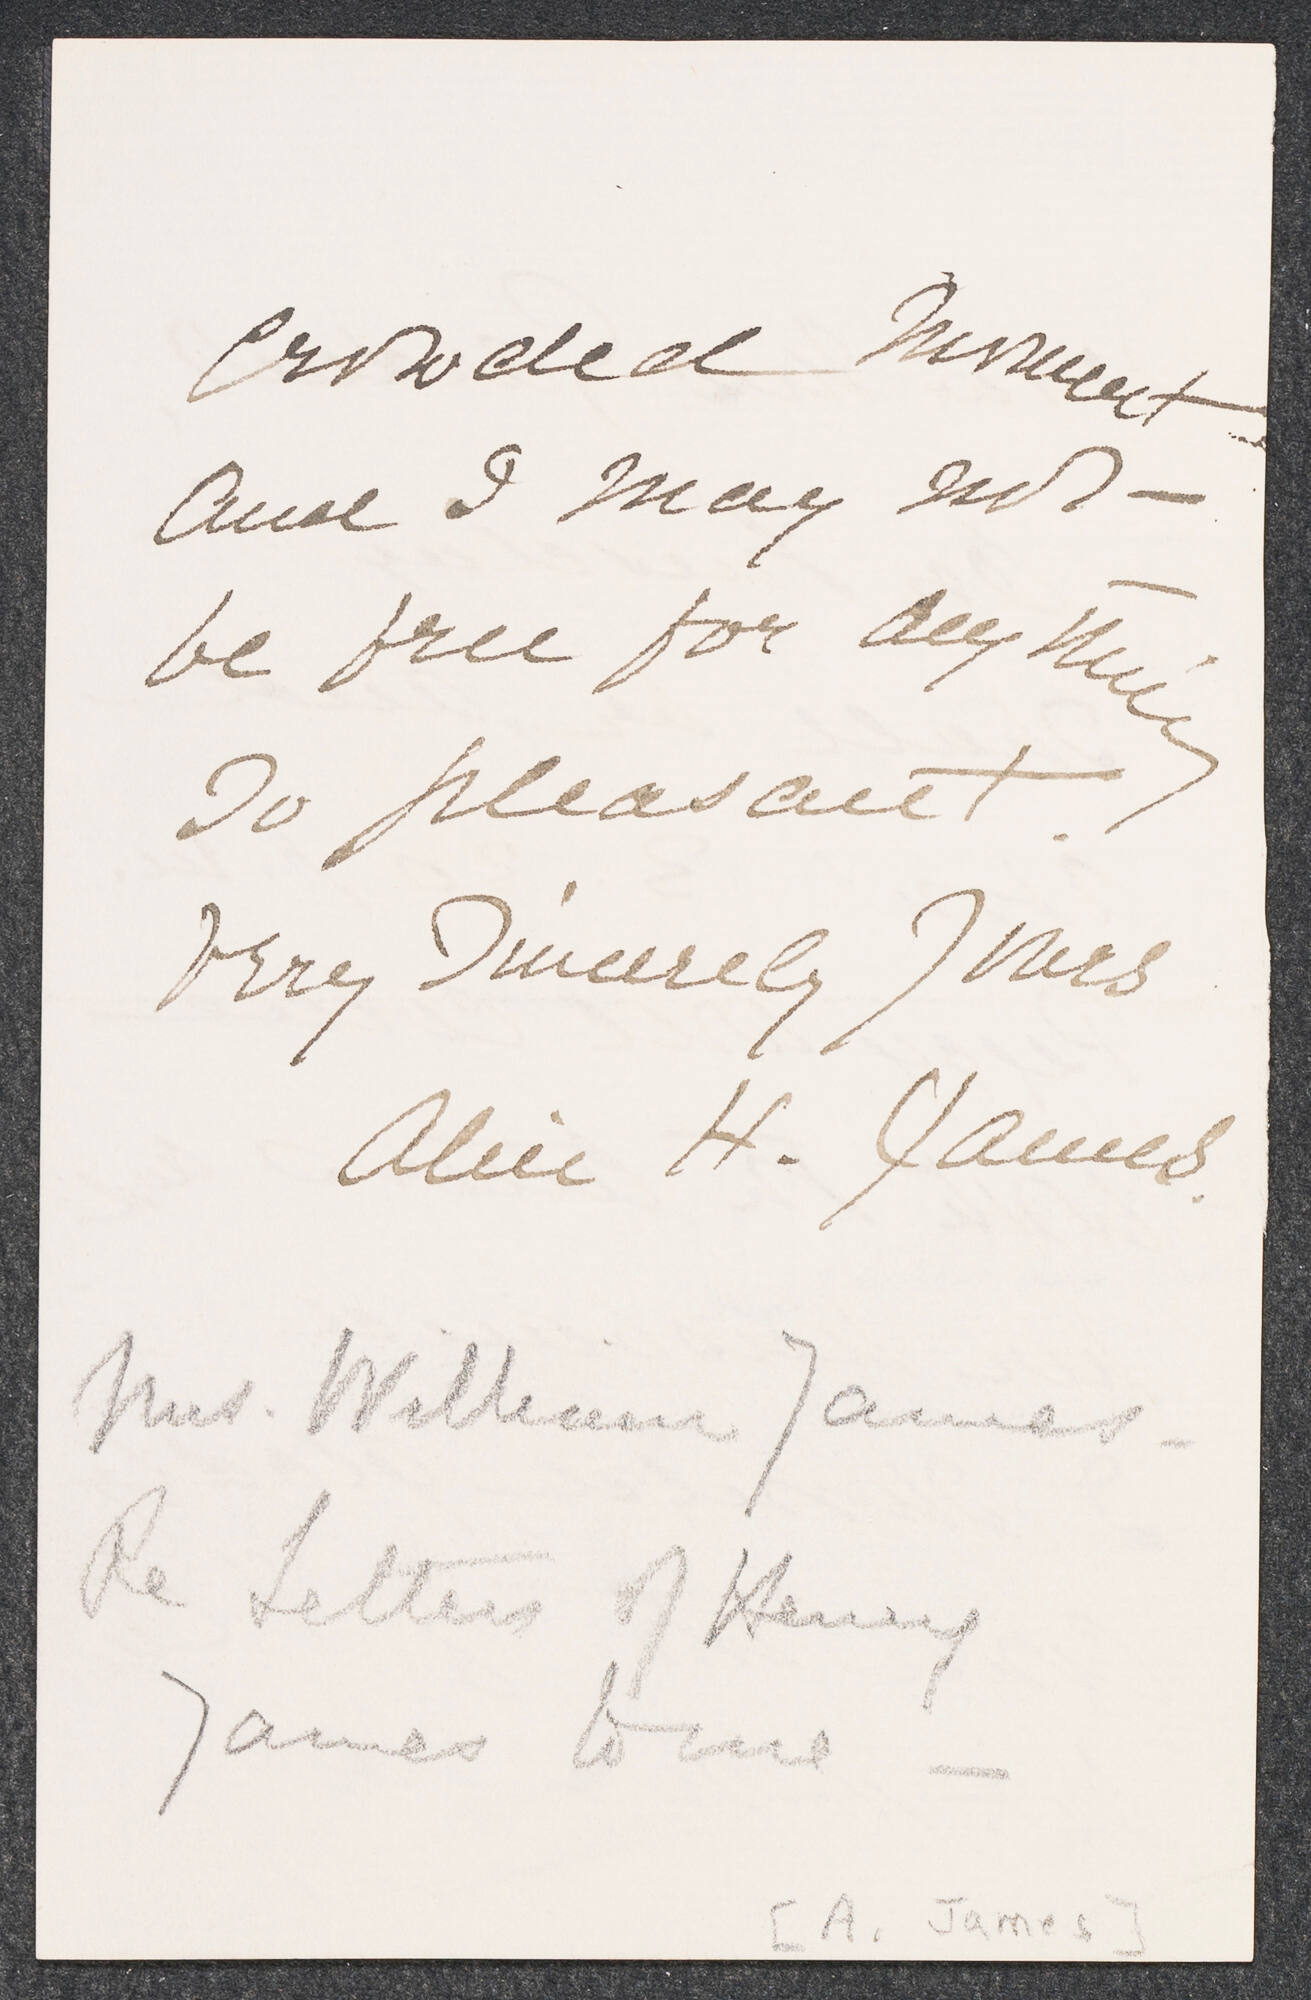 crowded moment
and I may not -
be free for anything
so pleasant.
Very sincerely yours
Alice H. James.
Mrs. William James -
Re Letters of Henry
James to me -
[A. James]